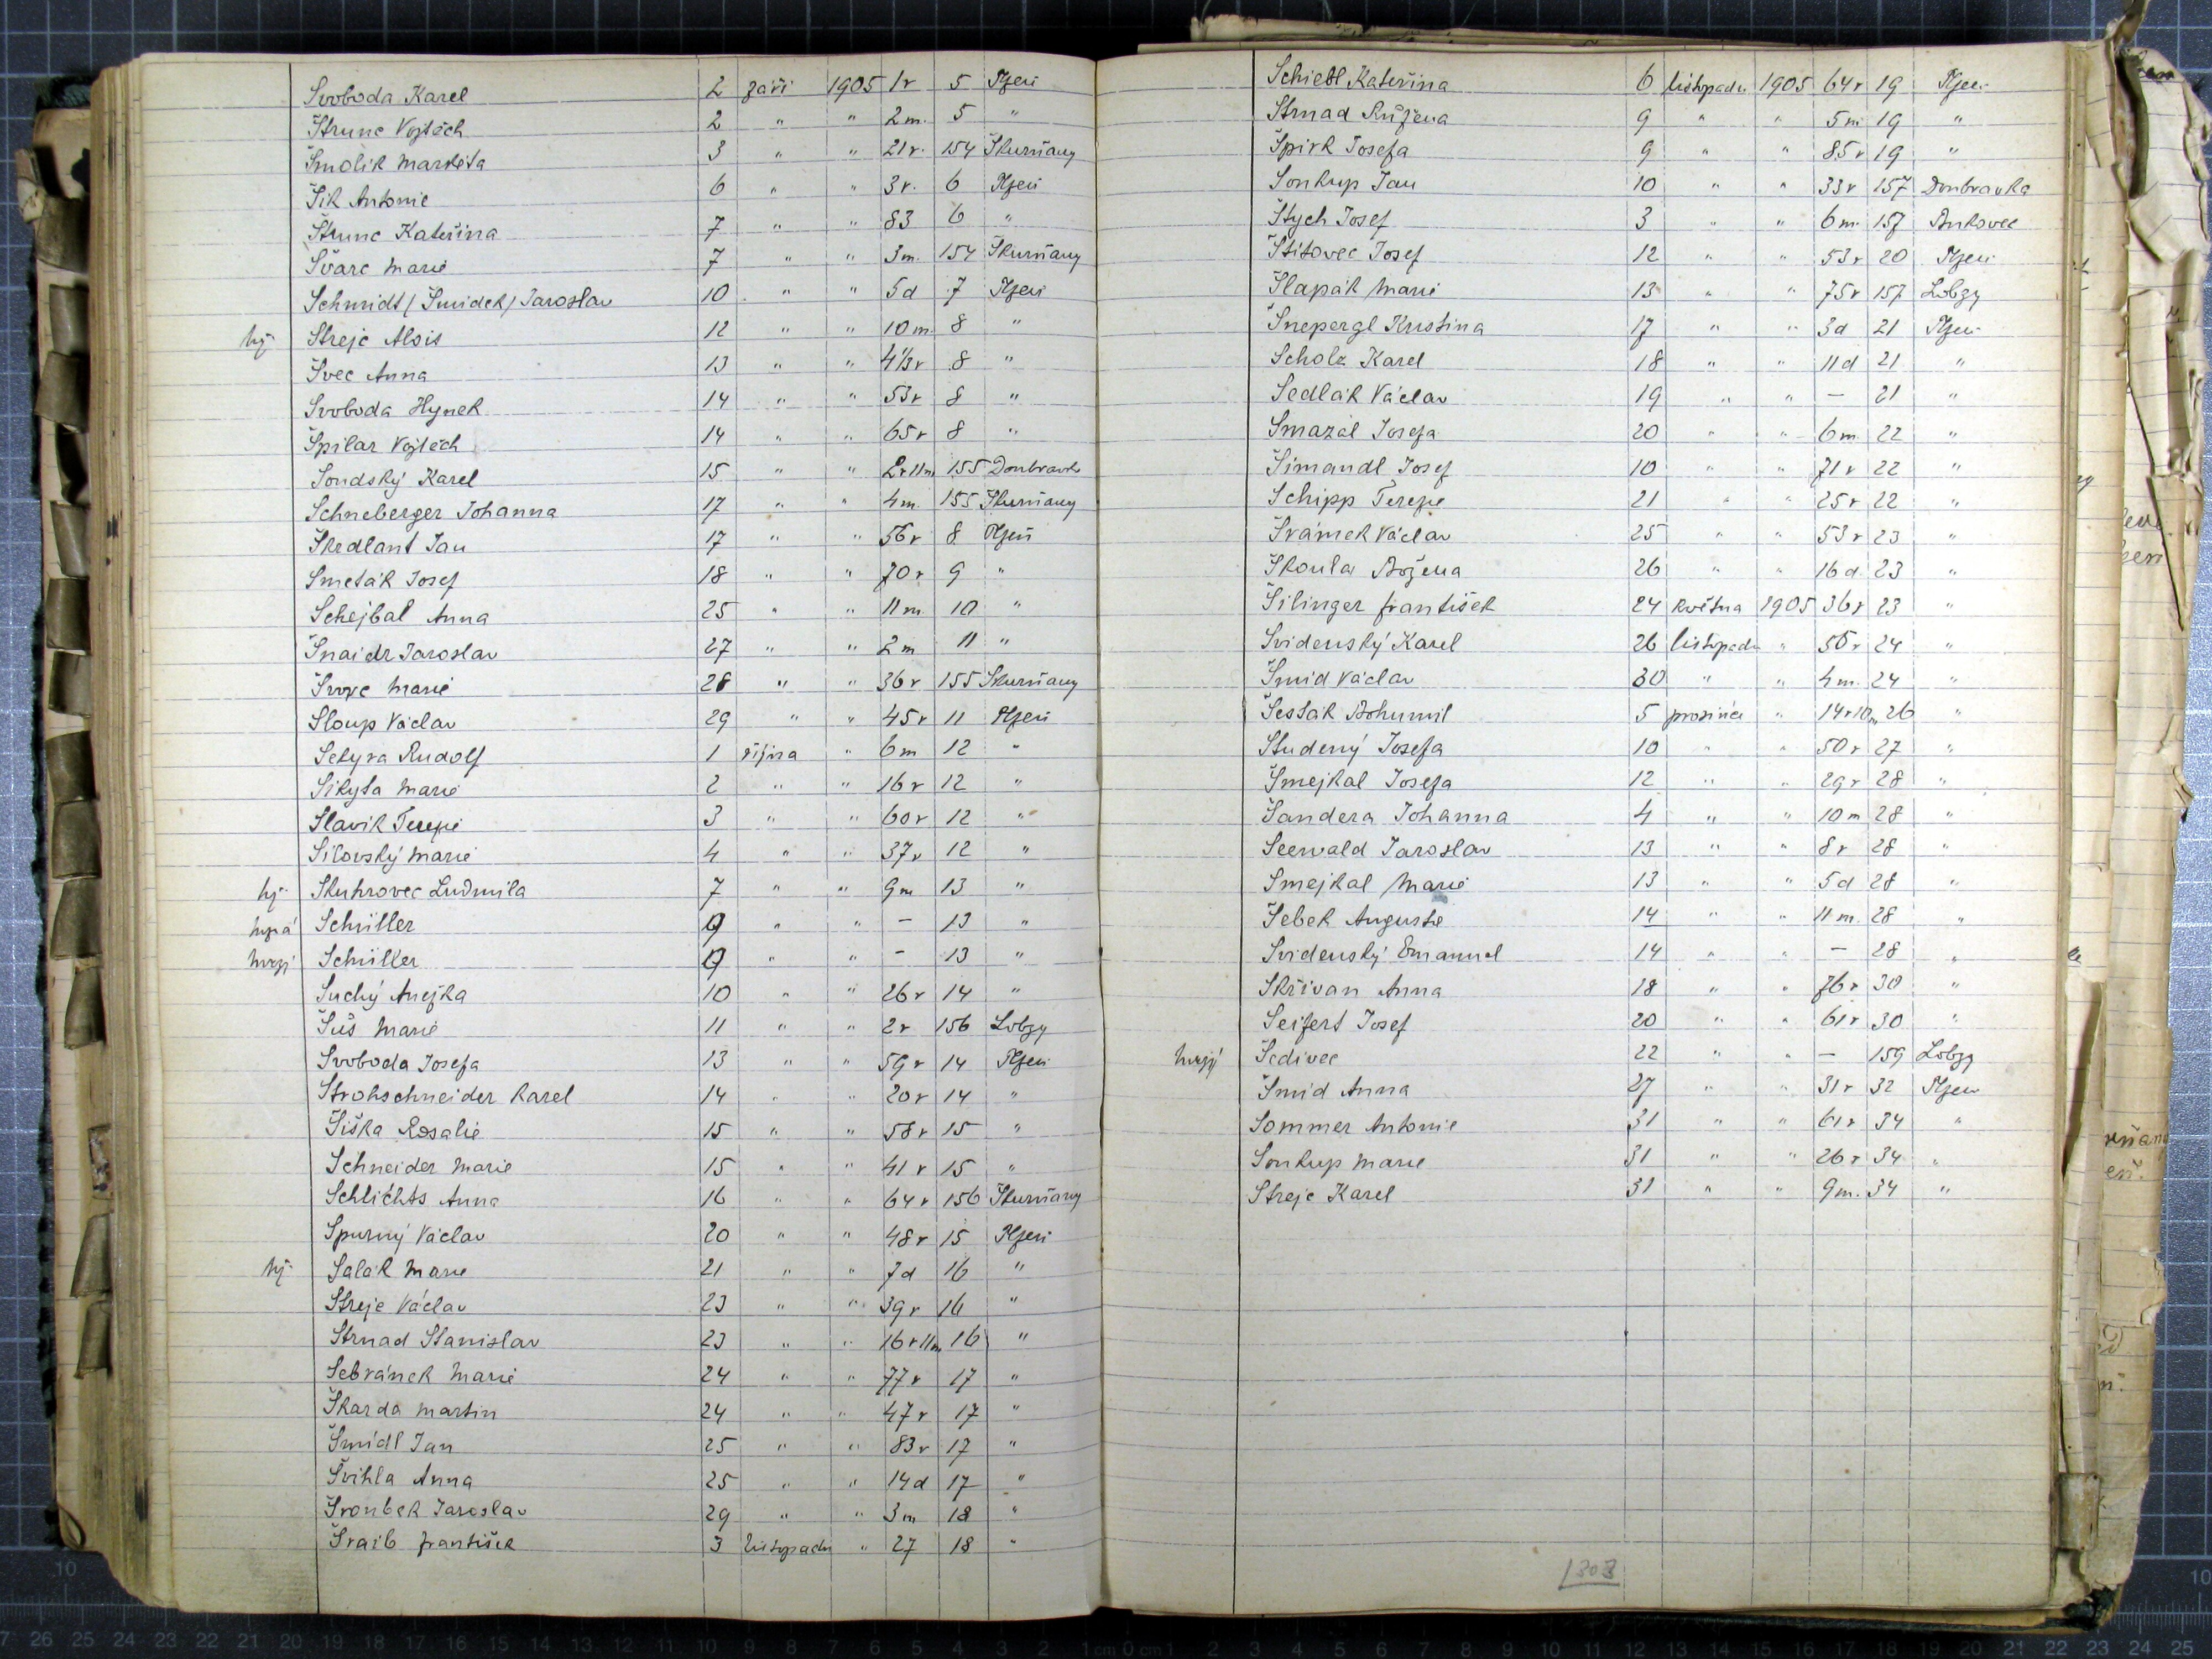 Svoboda Karel 2 září 1905 1r 5 Plzeň
Štrunc Vojtěch 2 " " 2m. 5 "
Smolík Markéta 3 " " 21r. 154 Skurňany
Šik Antonie 6 " " 3r. 6 Plzeň
Štrunc Kateřina 7 " " 83 6 "
Švarc Marie 7 " " 3m. 154 Skurňany
Schmidt /Šmidek/ Jaroslav 10 " " 5d 7 Plzeň
Strejc Alois 12 " " 10m. 8 "
Švec Anna 13 " " 4 1/3 r 8 "
Svoboda Hynek 14 " " 53r 8 "
Špilar Vojtěch 14 " " 65r 8 "
Sondský Karel 15 " " 2r11m 155 Doubravk
Schneberger Johanna 17 " " 4m. 155 Skurňany
Skedlant Jan 17 " " 56r 8 Plzeň
Smeták Josef 18 " " 70r 9 "
Schejbal Anna 25 " " 11m. 10 "
Šnaidr Jaroslav 27 " " 2m 11 "
Marie 28 " " 36r 155 Skurňany
Sloup Václav 29 " " 45r 11 Plzeň
Sekyra Rudolf 1 října " 6m 12 "
Sikyta Marie 2 " " 16r 12 "
Slavík Terezie 3 " " 60r 12 "
Silovský Marie 4 " " 37r 12 "
Skuhrovec Ludmila 7 " " 9m 13 "
Schüller 9 " " - 13 "
Schüller 9 " " - 13 "
Suchý Anežka 10 " " 26r 14 "
Šůs Marie 11 " " 2r 156 Lobzy
Svoboda Josefa 13 " " 59r 14 Plzeň
Strohschneider Karel 14 " " 20r 14 "
Šiška Rosalie 15 " " 58r 15 "
Schneider Marie 15 " " 41r 15 "
Schlichts Anna 16 " " 64r 156 Skurňany
Spurný Václav 20 " " 48r 15 Plzeň
Salák Marie 21 " " 7d 16 "
Strejc Václav 23 " " 39r 16 "
Strnad Stanislav 23 " " 16r11m 16 "
Sebránek Marie 24 " " 77r 17 "
Škarda Martin 24 " " 47r 17 "
Šmídl Jan 25 " " 83r 17 "
Švihla Anna 25 " " 14d 17 "
Šroubek Jaroslav 29 " " 3m 18 "
Šraib František 3 listopadu " 27 18 "
Schiebl Kateřina 6 listopadu 1905 64r 19 Plzeň
Strnad Růžena 9 " " 5m 19 "
Špirk Josefa 9 " " 85r 19 "
Soukup Jan 10 " " 33r 157 Doubravka
Štych Josef 3 " " 6m. 157 Bukovec
Štítovec Josef 12 " " 53r 20 Plzeň
Šlapák Marie 13 " " 75r 157 Lobzy
Šnepergl Kristina 17 " " 3d 21 Plzeň
Scholz Karel 18 " " 11d 21 "
Sedlák Václav 19 " " - 21 "
Smazal Josefa 20 " " 6m. 22 "
Šimandl Josef 10 " " 71r 22 "
Schipp Terezie 21 " " 25r 22 "
Šrámek Václav 25 " " 53r 23 "
Škoula Božena 26 " " 16d. 23 "
Šilinger František 24 května 1905 36r 23 "
Svidenský Karel 26 listopadu " 56r 24 "
Šmid Václav 30 " " 4m. 24 "
Šesták Bohumil 5 prosince " 14r10m 26 "
Studený Josefa 10 " " 50r 27 "
Smejkal Josefa 12 " " 29r 28 "
Šandera Johanna 4 " " 10m 28 "
Seewald Jaroslav 13 " " 8r 28 "
Smejkal Marie 13 " " 5d 28 "
Šebek Augusta 14 " " 11m. 28 "
Svidenský Emanuel 14 " " - 28 "
Skřivan Anna 18 " " 76r 30 "
Seifert Josef 20 " " 61r 30 "
Šedivec 22 " " - 159 Lobzy
Šmíd Anna 27 " " 31r 32 Plzeň
Sommer Antonie 31 " " 61r 34 "
Soukup Marie 31 " " 26r 34 "
Strejc Karel 31 " " 9m. 34 "
1303